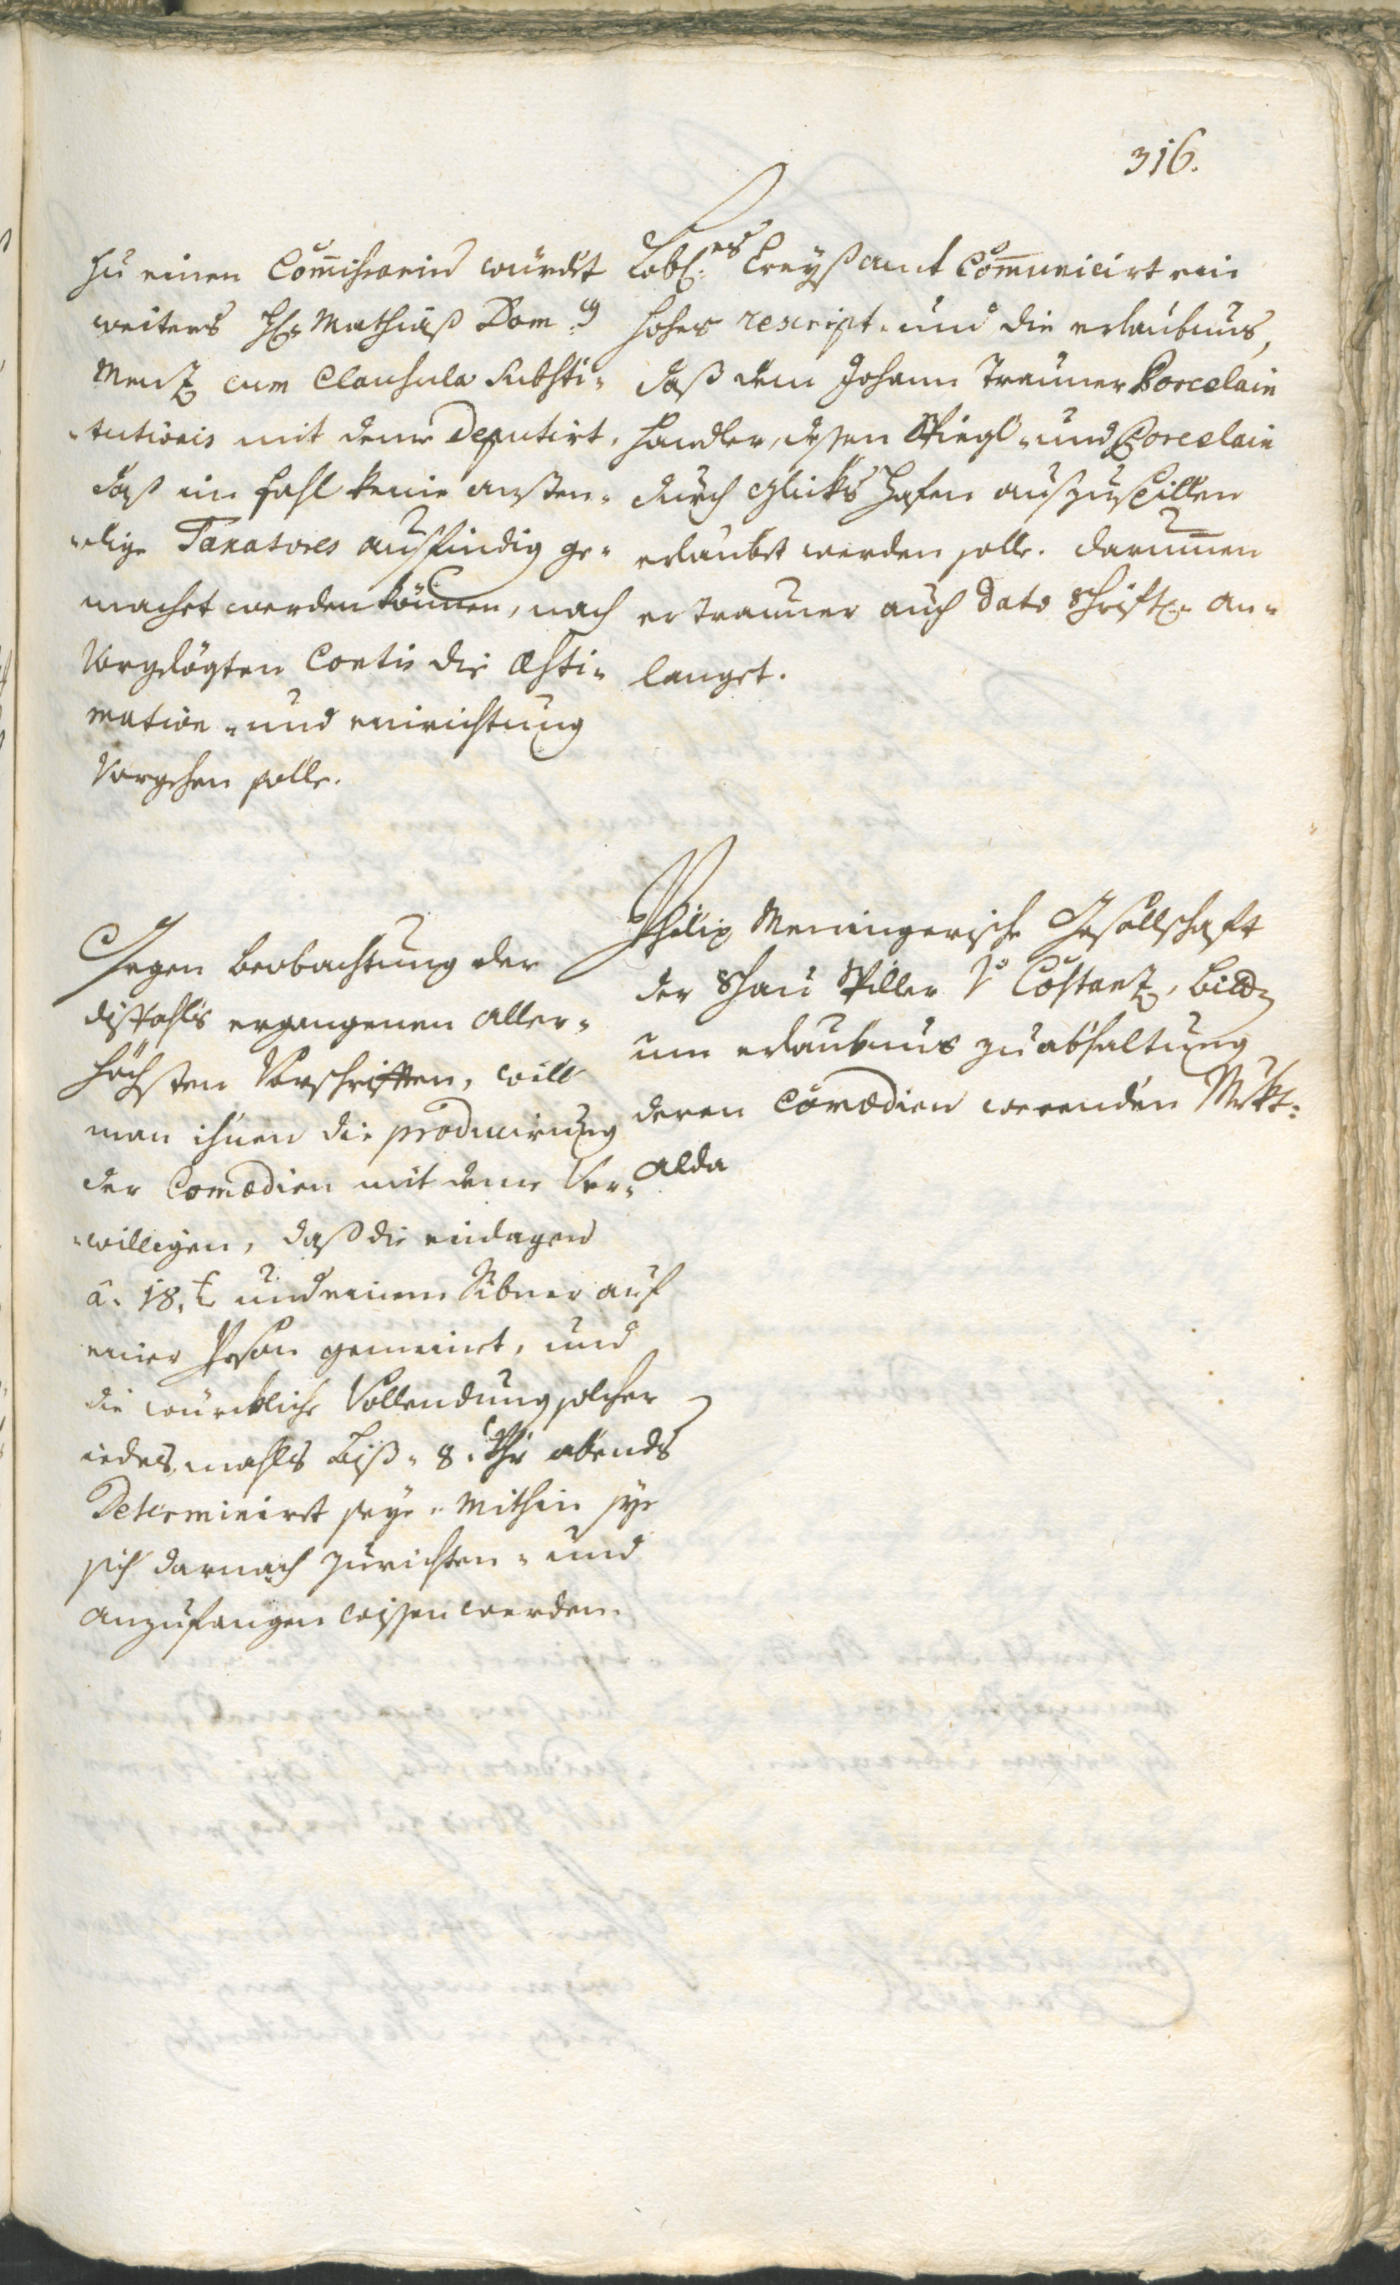 316.
Zu einen Com̄issario würdt
weiters H: Mathias Dom:
Menz cum Clausula substi-
-tutionis mit deme Deputirt,
daß im fahl keine anstän-
-dige Taxatores ausfindig ge-
machet werden können, nach
Vorgelögten Contis die æsti-
mation- und einrichtung
Vorgehen solle.
Löbl:es Creyßamt Com̄unicirt ein
hohes rescript- und die erlaubnus,
daß dem Johann Trauner Porcelain
Handler, dessen Spiegl- und Porcelain
durch Gliks Hafen auszuspillen
erlaubet werden solle. darum̄en
er Trauner auch dato schriftl: an-
langet.
Gegen beobachtung der
disfahls ergangenen aller-
höchsten Vorschriften, will
man ihnen die producirung
der Comœdien mit deme Ver-
-willigen, daß die einlagen
â. 18. x und einem Sibner auf
einer Person gemeinet, und
die würkliche Vollendung solcher
iedesmahls biß- 8. Uhr abends
Determinirt seye- mithin sye
sich darnach zurichten- und
anzufangen wissen werden.
Philip Meningerische Gesellschaft
der Schau Spiller Vo Costanz, bitt
um erlaubnus zu abhaltung
deren Comœdien werenden Mrkt:
alda